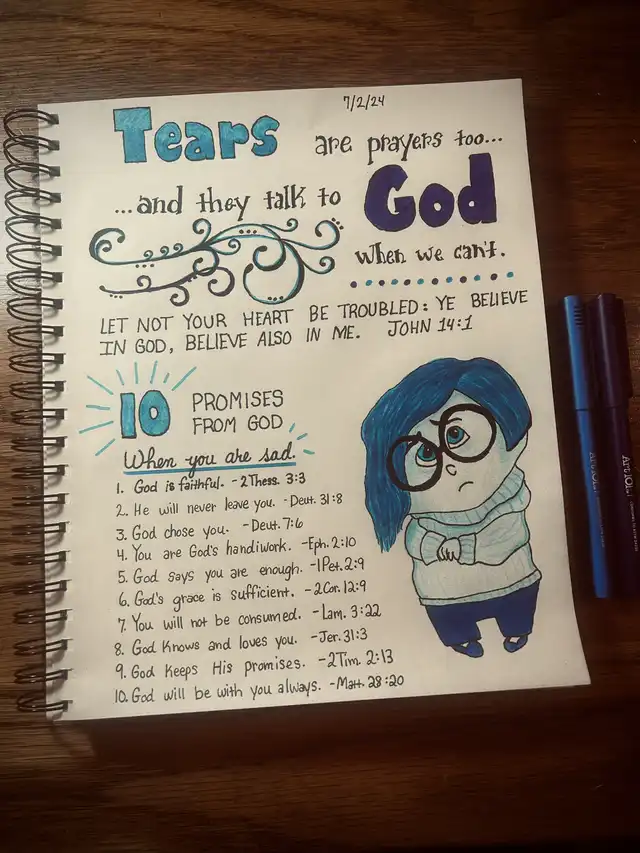 7/2/24
Tears are prayers too...
...and they talk to God
when we can't.
LET NOT YOUR HEART BE TROUBLED: YE BELIEVE
IN GOD, BELIEVE ALSO IN ME. JOHN 14:1
10 PROMISES
FROM GOD
When you are sad.
1. God is faithful. - 2 Thess. 3:3
2. He will never leave you. - Deut. 31:8
3. God chose you. - Deut. 7:6
4. You are God's handiwork. - Eph. 2:10
5. God says you are enough. - 1 Pet. 2:9
6. God's grace is sufficient. - 2 Cor. 12:9
7. You will not be consumed. - Lam. 3:22
8. God knows and loves you. - Jer. 31:3
9. God keeps His promises. - 2 Tim. 2:13
10. God will be with you always. - Matt. 28:20